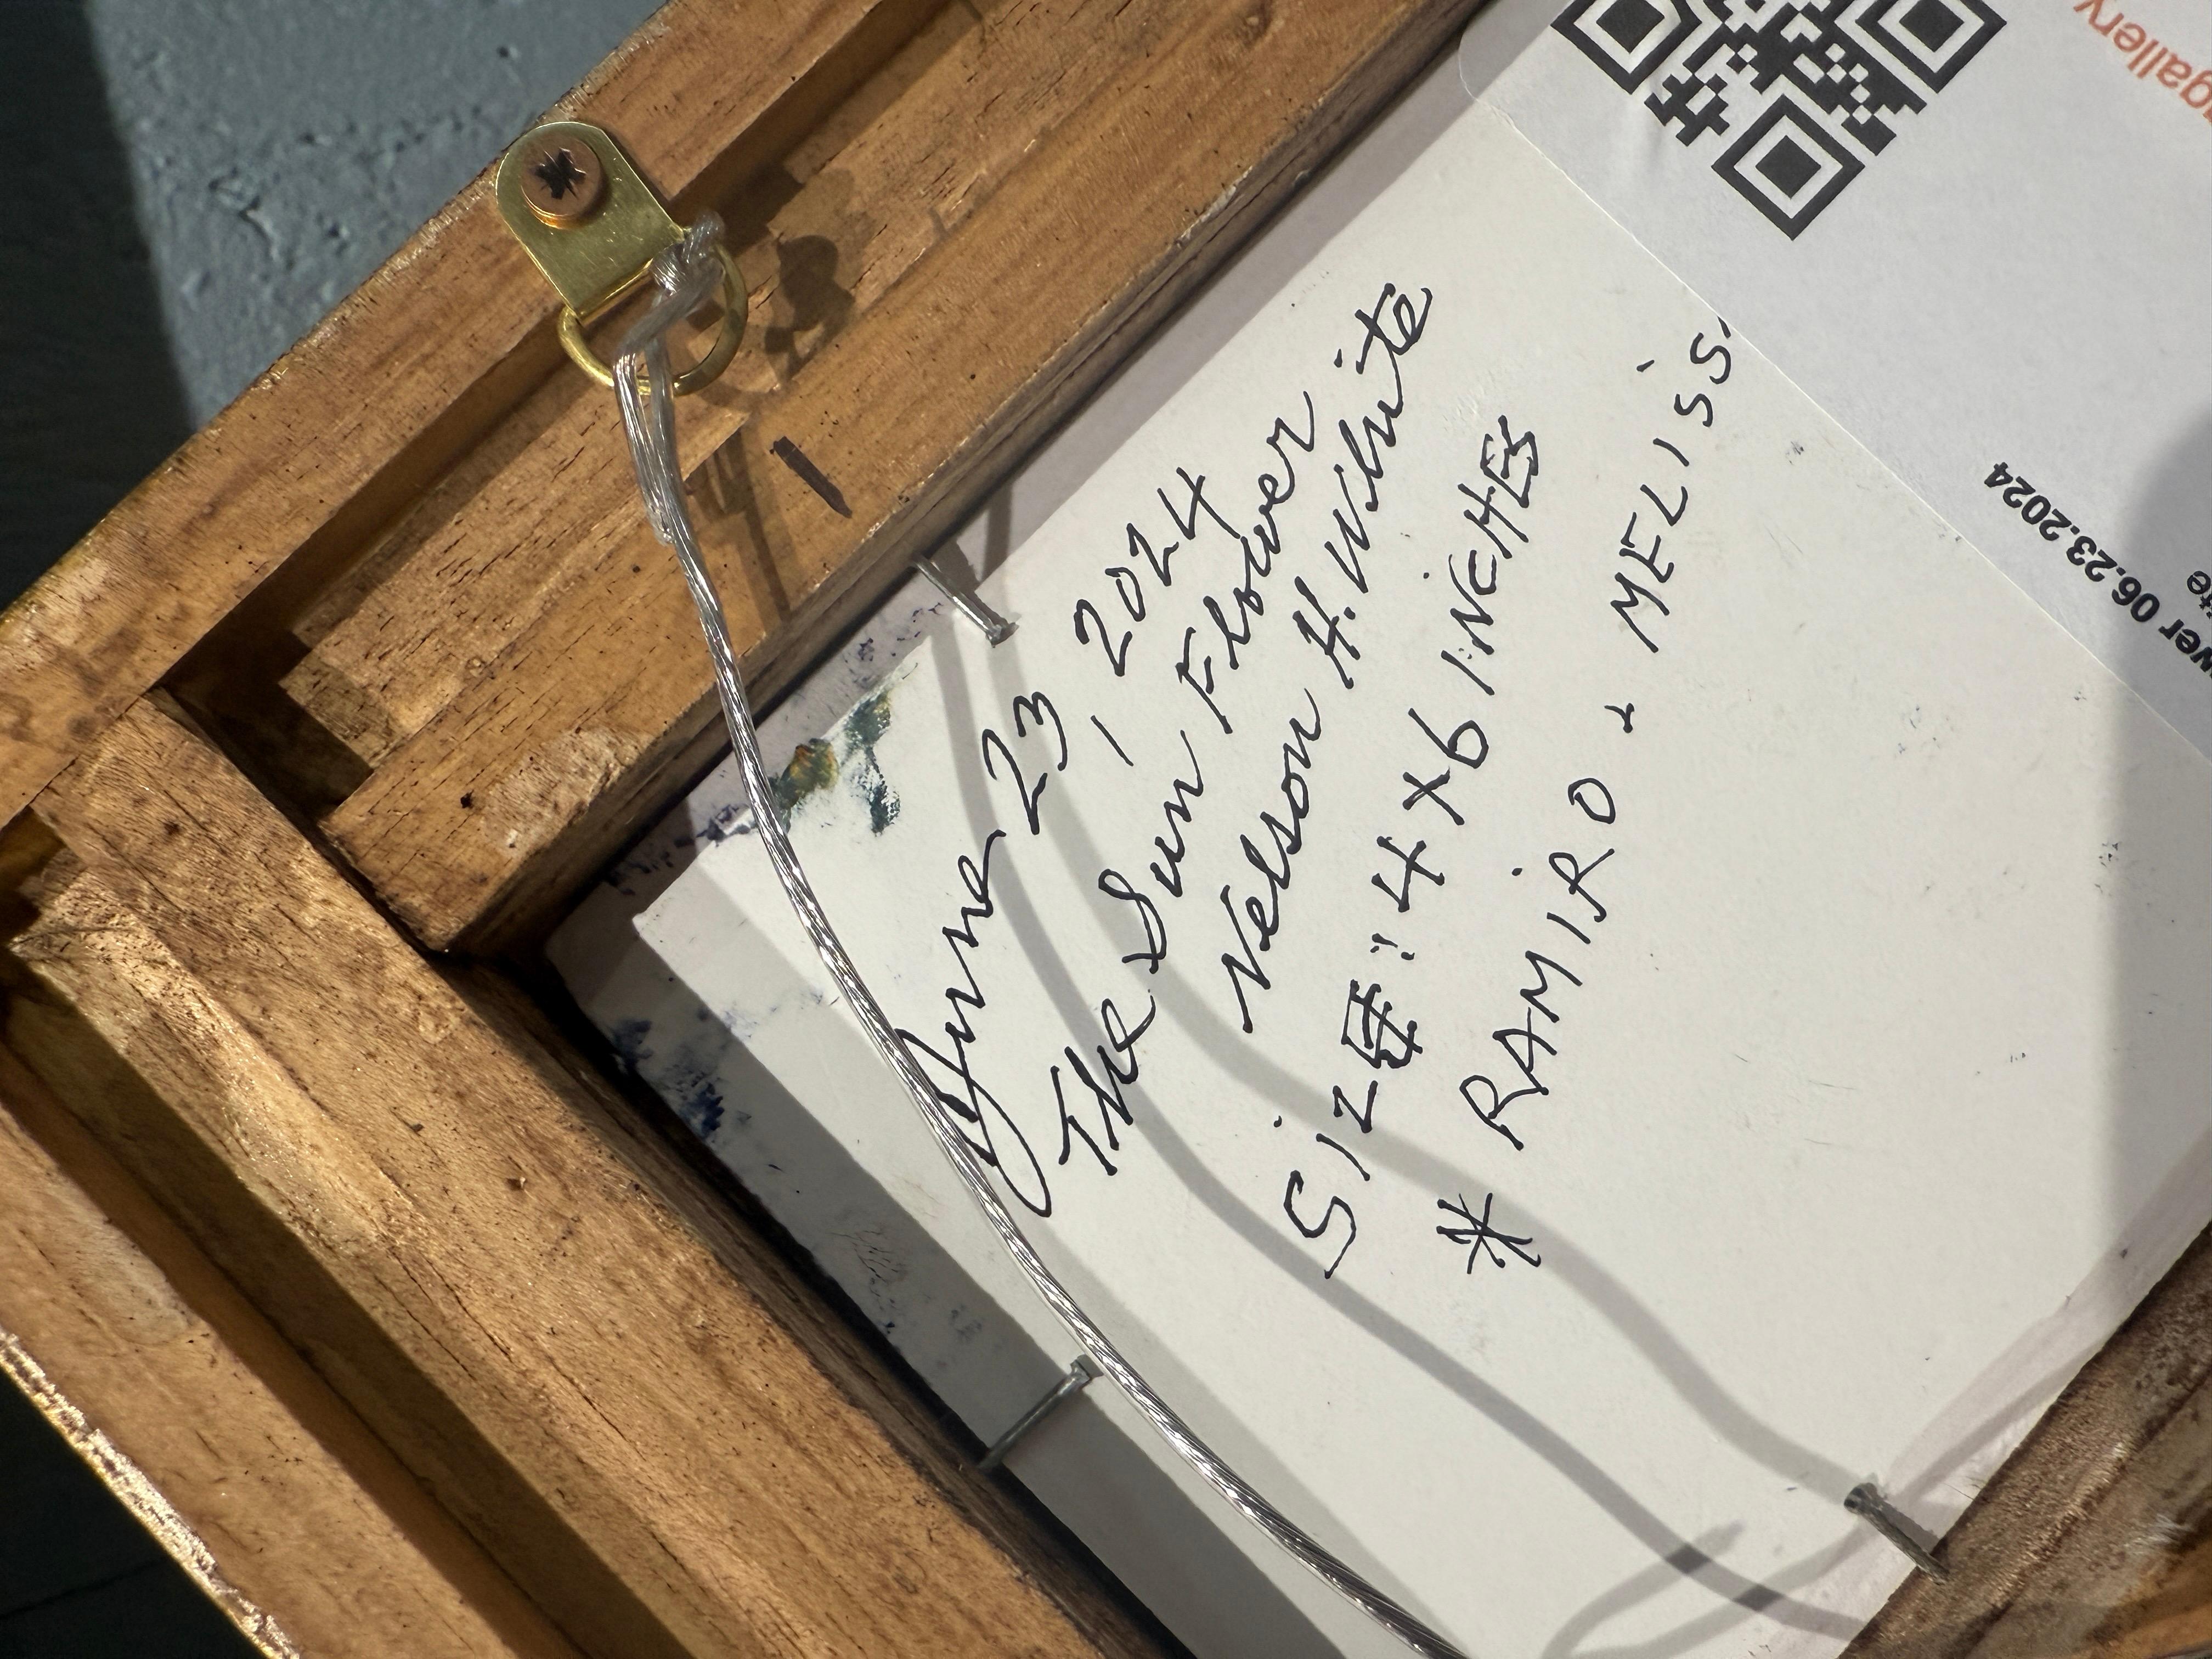 June 23, 2024
The Sun Flower
Nelson H. White
Size: 4 X 6 INCHES
* RAMIRO + MELISS
gallery
wer 06.23.2024
ite